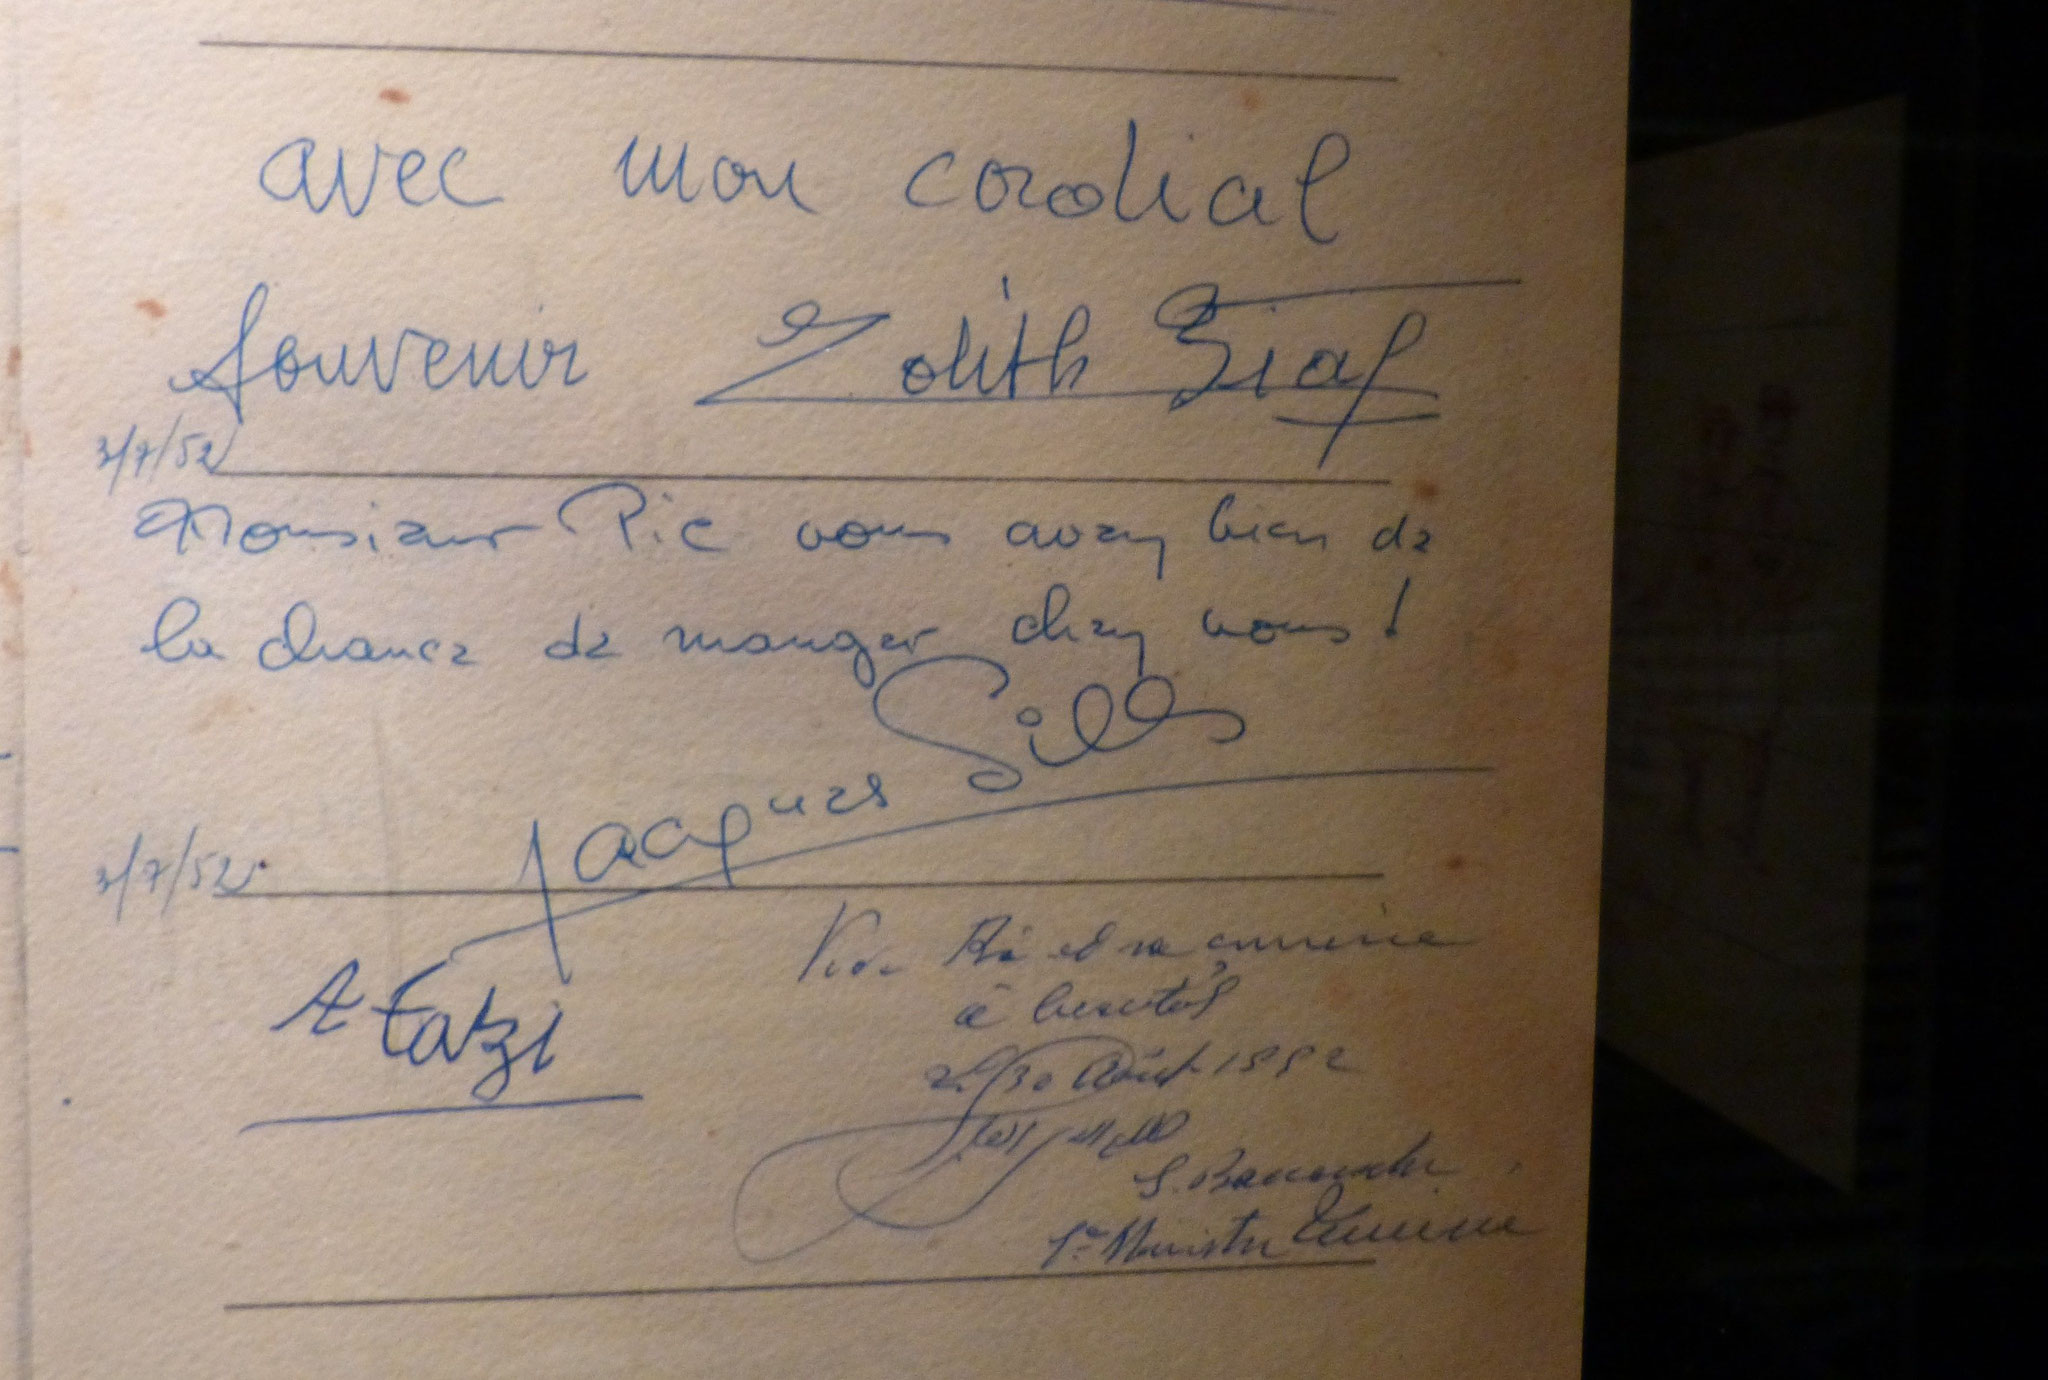 avec mon cordial
Souvenir Edith Piaf
3/7/52
Monsieur Pic vous avez bien de
la chance de manger chez vous !
Jacques Pills
3/7/52
A Fatzi
et sa cuisine
à bientôt
30 Août 1952
1er Ministre Tunisie